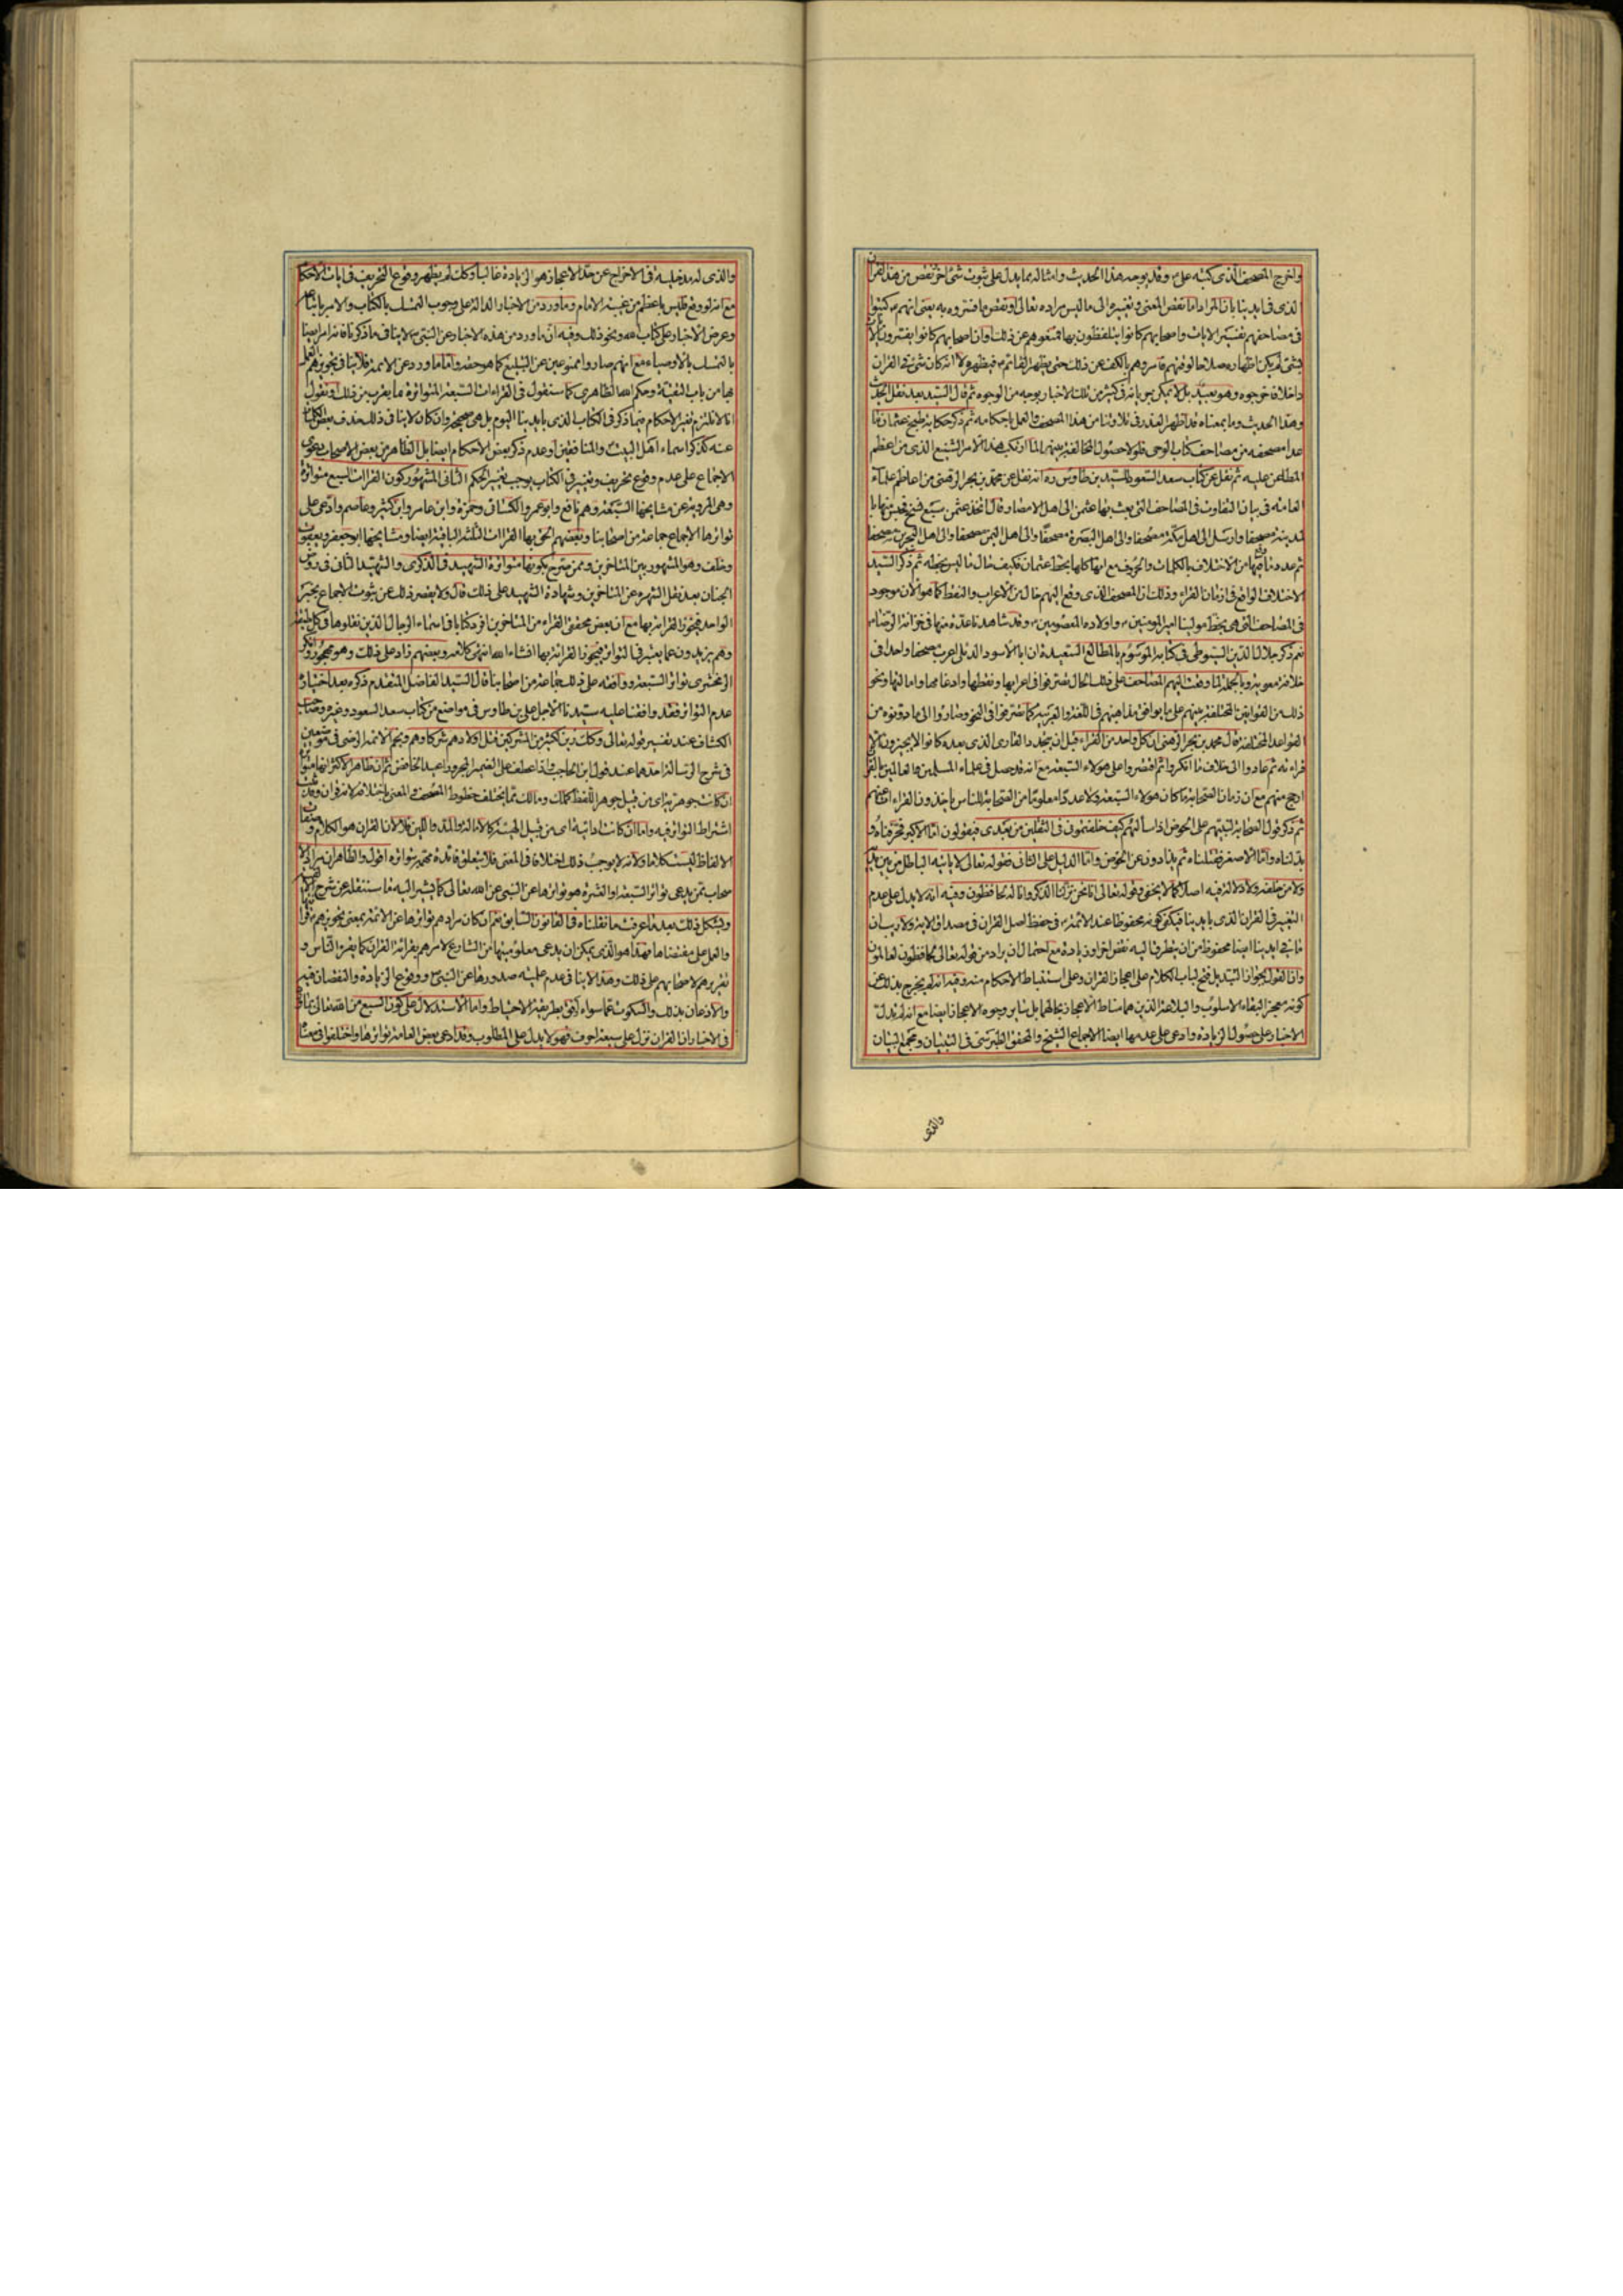 واخرج المصحف الذي كتبه على وقد يوجه هذا الحديث وامثاله مما يدل على ثبوت شئ اخر نقص من هذا القران
الذي في ايدينا بان المراد اما نقص المعنى وتغييره الى ما ليس مراده تعالى او نقص ما فسروه به يعنى انهم كتبوا
في مصاحفهم تفسير الايات واصحابهم كانوا يتلفظون بها فمنعوهم عن ذلك وان اصحابهم كانوا يفسرون
بشئ لم يكن اظهاره صلاحا لوقتهم فامروهم بالكف عن ذلك حتى يظهر القائم فيظهره لا انه كان شئ في القران
داخلا فاخرجوه وهو بعيد بل لا يمكن جريانه في كثير من تلك الاخبار بوجه من الوجوه ثم قال السيد بعد نقل
وهذا الحديث وما بمعناه قد اظهر العذر في تلاوتنا من هذا المصحف والعمل باحكامه ثم ذكر حكاية طبخ عثمان ما
عدا مصحفه من مصاحف كتاب الوحى فلولا حصول المخالفة بينهم لما ارتكب هذا الامر الشنيع الذي من اعظم
المطاعن عليه ثم نقل عن كتاب سعد السعود للسيد بن طاوس ره انه نقل عن محمد بن بحر الرهنى من اعاظم علماء
العامة في بيان التفاوت في المصاحف التى بعث بها عثمن الى اهل الامصار وقال اتخذ عثمن سبع نسخ فحبس منها با
لمدينة مصحفا وارسل الى اهل مكة مصحفا والى اهل البصرة مصحفا والى اهل اليمن مصحفا والى اهل البحرين مصحفا
ثم عدد ما فيها من الاختلاف بالكلمات والحروف مع انها كلها بخط عثمان فكيف حال ما ليس بخطه ثم ذكر السيد
الاختلاف الواقع في ازمان القراء وذلك ان المصحف الذي وقع اليهم خال من الاعراب والنقط كما هو الان موجود
في المصاحف التى هى بخط مولينا امير المومنين واولاده المعصومين وقد شاهدنا عدة منها في خزانة الرضا
نعم ذكر جلال الدين السيوطى في كتابه الموسوم بالمطالع السعيدة ان ابا الاسود الدئلى اعرب مصحفا واحدا في
خلافة معوية وبالجملة لما وقعت اليهم المصاحف على ذلك الحال تصرفوا في اعرابها ونقطها وادغامها وامالتها ونحو
ذلك من القوانين المختلفة بينهم على ما يوافق مذاهبهم في اللغة والعربية كما تصرفوا في النحو وصاروا الى ما دونوه من
القواعد المختلفة قال محمد بن بحر الرهنى ان كل واحد من القراء قبل ان يتجدد القارى الذي بعده كانوا لا يجيزون الا
قراءته ثم عادوا الى خلاف ما انكروا ثم اقتصروا على هولاء السبعة مع انه قد حصل في علماء المسلمين والعالمين بالقران
ارجح منهم مع ان زمان الصحابة ما كان هولاء السبعة ولا عددا معلوما من الصحابة للناس ياخذون القراءة عنهم
ثم ذكر قول الصحابة لنبيهم على الحوض اذا سالهم كيف خلفتمونى في الثقلين من بعدى فيقولون اما الاكبر فحرفناه و
بدلناه واما الاصغر فقتلناه ثم يذادون عن الحوض واما الدليل على الثانى فقوله تعالى لا ياتيه الباطل من بين يديه
ولا من خلفه ولا دلالة فيه اصلا كما لا يخفى وقوله تعالى انا نحن نزلنا الذكر وانا له لحافظون وفيه انه لا يدل على عدم
التغيير في القران الذي بايدينا فيكفى كونه محفوظا عند الائمة في حفظ اصل القران في مصداق الاية ولا ريب ان
ما في ايدينا ايضا محفوظ من ان يتطرق اليه نقص اخر او زيادة مع احتمال ان يراد من قوله تعالى لحافظون لعالمون
وان القول بجواز التبديل فتح لباب الكلام على اعجاز القران وعلى استنباط الاحكام منه وفيه انه لم يخرج بذلك عن
كونه معجزا لبقاء الاسلوب والبلاغة الذين هما مناط الاعجاز بحالهما بل سائر وجوه الاعجاز ايضا مع انه لم يدل
الاخبار على حصول الزيادة وادعى على عدمها ايضا الاجماع الشيخ والمحقق الطبرسى في التبيان ومجمع البيان
والذى
والذى له مدخلية في الاخراج عن حد الاعجاز هو الزيادة غالبا وكذلك لم يظهر وقوع التحريف في ايات الاحكام
مع انه لو وقع فليس باعظم من غيبة الامام وما ورد من الاخبار الدالة على وجوب التمسك بالكتاب والامر باتباعه
وعرض الاخبار على كتاب الله ونحو ذلك وفيه ان ما ورد من هذه الاخبار عن النبى لا ينافى ما ذكرنا فانه امر ايضا
بالتمسك بالاوصياء مع انهم صاروا ممنوعين عن التبليغ كما هو حقه واما ما ورد عن الائمة فلا ينافى تجويزهم العمل
بها من باب التقية وحكم الله الظاهرى كما سنقول في القراءات السبعة المتواترة ما يقرب من ذلك او نقول
انا لا نلتزم تغير الاحكام فيما ذكر في الكتاب الذي بايدينا اليوم بل هى صحيحة وان كان لا ينافى ذلك حذف بعض الكلمات
عنه كذكر اسماء اهل البيت والمنافقين وعدم ذكر بعض الاحكام ايضا بل الظاهر من بعض الاصحاب دعوى
الاجماع على عدم وقوع تحريف وتغيير في الكتاب يوجب تغيير الحكم الثانى المشهور كون القراات السبع متواترة
وهى المروية عن مشايخها السبعة وهم نافع وابو عمرو والكسائى وحمزة وابن عامر وابن كثير وعاصم وادعى على
تواترها الاجماع جماعة من اصحابنا وبعضهم الحق بها القراات الثلث الباقية ايضا ومشايخها ابو جعفر ويعقوب
وخلف وهو المشهور بين المتاخرين وممن صرح بكونها متواترة الشهيد في الذكرى والشهيد الثانى في روض
الجنان بعد نقل الشهرة عن المتاخرين وشهادة الشهيد على ذلك قال ولا يقصر ذلك عن ثبوت الاجماع بخبر
الواحد فيجوز القرائة بها مع ان بعض محققى القراء من المتاخرين افرد كتابا في اسماء الرجال الذين نقلوها في كل طبقة
وهم يزيدون عما يعتبر في التواتر فيجوز القرائة بها انشاء الله انتهى كلامه وبعضهم زاد على ذلك
الزمخشرى تواتر السبعة ووافقه على ذلك جماعة من اصحابنا قال السيد الفاضل المتقدم ذكره بعد اختياره
عدم التواتر فقد وافقنا عليه سيدنا الاجل على بن طاوس في مواضع من كتاب سعد السعود وغيره وصاحب
الكشاف عند تفسير قوله تعالى وكذلك زين لكثير من المشركين قتل اولادهم شركاوهم ونجم الائمة الرضى في موضعين
في شرح الرسالة احدهما عند قول ابن الحاجب واذا عطف على الضمير المجرور اعيد الخافض ثم ان ظاهر الاكثر انها متواترة
ان كانت جوهرية اى من قبيل جوهر اللفظ كملك ومالك مما يختلف خطوط المصحف والمعنى باختلافه لانه قران وقد ثبت
اشتراط التواتر فيه واما ان كانت ادائية اى من قبيل الهيئة كالامالة والمد واللين فلا لان القران هو الكلام
الالفاظ ليست كلاما ولانه لا يوجب ذلك اختلافا في المعنى فلا يتعلق فائدة مهمة بتواتره اقول والظاهر ان مراد
صحاب ممن يدعى تواتر السبعة او العشرة هو تواترها عن النبى عن الله تعالى كما يشير اليه ما سننقله عن شرح
ويشكل ذلك بعد ما عرفت ما نقلناه في القانون السابق نعم ان كان مرادهم تواترها عن الائمة بمعنى تجويزهم
والعمل على مقتضاها فهذا هو الذي يمكن ان يدعى معلوميتها من الشارع لامرهم بقرائة القران كما يقرء الناس و
تقريرهم لاصحابهم على ذلك وهذا لا ينافى عدم علمية صدورها عن النبى ووقوع الزيادة والنقصان فيه
والاذعان بذلك والسكوت عما سواه اوفق بطريقة الاحتياط واما الاستدلال على كون السبع من الله تعالى بما
في الاخبار ان القران نزل على سبعة احرف فهو لا يدل على المطلوب وقد ادعى بعض العامة تواترها واختلفوا في معناه